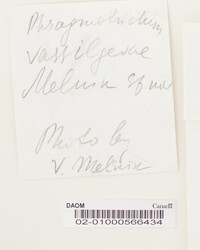 Phragmotrichum
vassiljevae
Melnik sp. nov
Photo by
V. Melnik
DAOM
Canada
02-01000566434